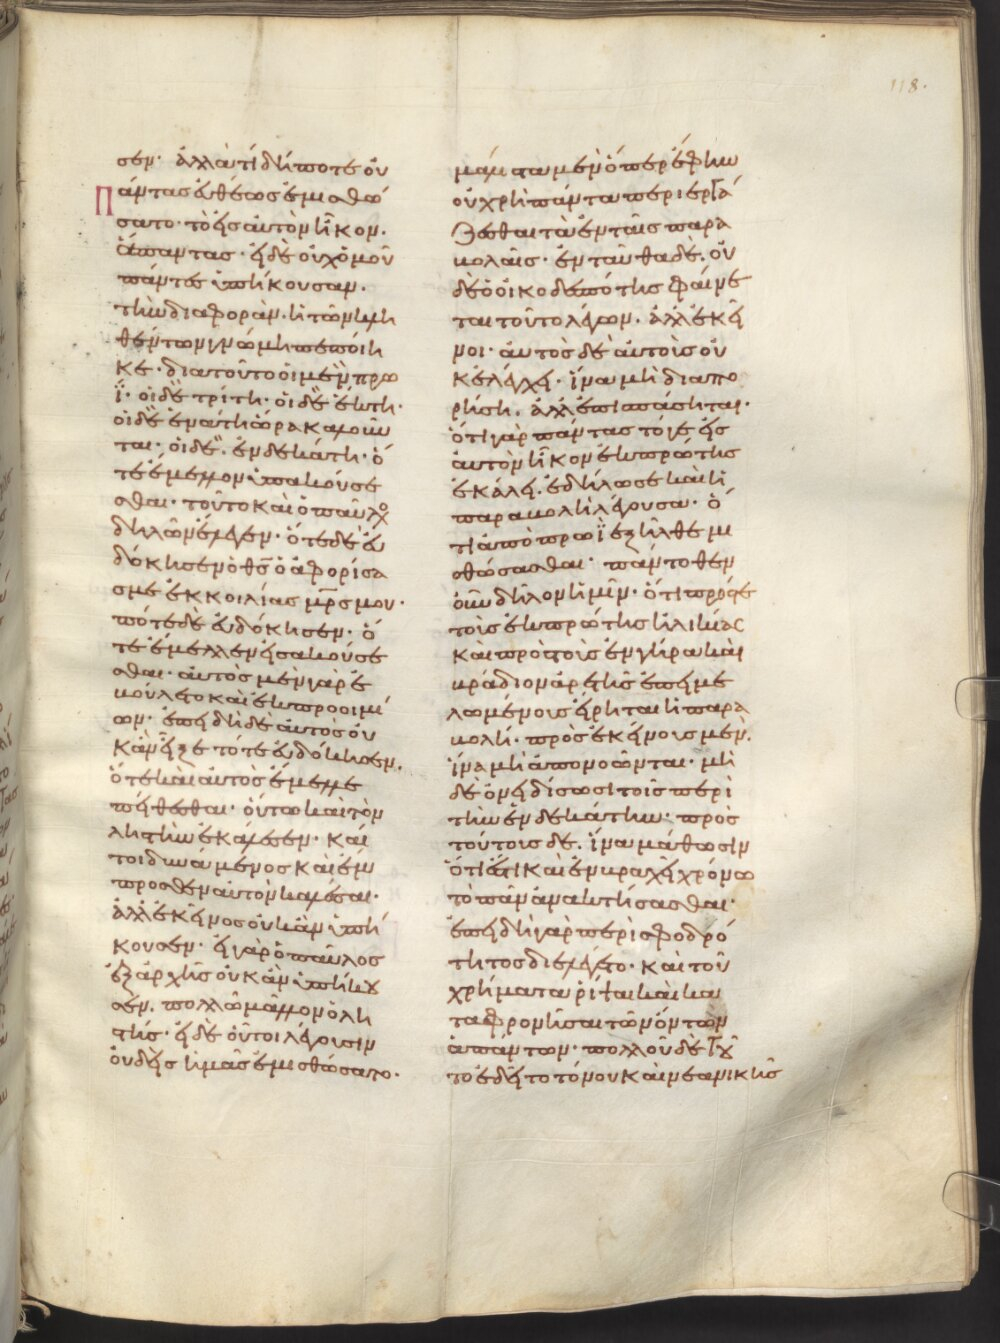 118.
σεν· ἀλλὰ τί δήποτε οὐ
πάντας ἐυθέως ἐμισθώ
σατο· τὸ ἐις ἀυτὸν ἧκον.
ἅπαντας· ἐι δὲ οὐχ ὁμοῦ
πάντες ὑπήκουσαν.
τὴν διαφορὰν· ἡ τῶν κλη
θέντων γνώμη πεποίη
κε· διατοῦτο οἱ μὲν πρω
ΐ· οἱ δὲ τρίτη· οἱ δὲ ἕκτη·
οἱ δὲ ἐνάτη ὥρα καλοῦν
ται· οἱ δὲ ἑνδεκάτη· ὅ
τε ἔμελλον ὑπακούσε
σθαι· τοῦτο καὶ ὁ παῦλος
δηλῶν ἔλεγεν· ὅτε δὲ ἐυ
δόκησεν ὁ θς ὁ ἀφορίσα
σ με ἐκ κοιλίας μρς μου·
πότε δὲ ἐυδόκησεν· ὅ
τε ἔμελλεν εἰσακούσε
σθαι· ἀυτὸς μὲν γὰρ ἐ
βούλετο καὶ ἐκ προοιμί
ων· ἐπειδὴ δὲ ἀυτὸς οὐ
κ ἂν εἶξε τότε ἐυδόκησεν.
ὅτε καὶ ἀυτὸς ἔμελλε
πείθεσθαι· ὅυτω καὶ τὸν
ληστὴν ἐκάλεσεν· καί
τοι δυνάμενος καὶ ἔμ
προσθεν ἀυτὸν καλέσαι·
ἀλλ ἐκεῖνος οὐκ ἂν ὑπή
κουσεν· ἐι γὰρ ὁ παῦλος
ἐξ ἀρχῆς οὐκ ἂν ὑπήκου
σεν. πολλῶ μᾶλλον ὁ λη
στής· ἐι δὲ οὗτοι λέγουσιν
ὁυδεὶς ἡμᾶς ἐμισθώσατο·
μάλιστα μὲν ὅπερ ἔφην
οὐ χρὴ πάντα περιεργά
ζεσθαι τὰ ἐν ταῖς παρα
βολαῖς· ἐνταῦθα δὲ. οὐ
δὲ ὁ οἰκοδεσπότης φαίνε
ται τοῦτο λέγων. ἀλλ ἐκεῖ
νοι· ἀυτὸς δὲ ἀυτοὺς οὐ
κ ἐλέγχει· ἵνα μὴ διαπο
ρήση. ἀλλ ἐπισπάσηται·
ὅτι γὰρ πάντας τό γε ἐις
ἀυτὸν ἧκον ἐκ πρώτης
ἐκάλει. ἐδήλωσε καὶ ἡ
παραβολὴ λέγουσα· ὅ
τι ἀπὸ πρωῒ ἐξῆλθε μι
σθώσασθαι· πάντοθεν
οὖν δῆλον ἡμῖν· ὅτι πρός τε
τοὺς ἐκ πρώτης ἡλικίας
καὶ πρὸς τοὺς ἐν γήρα καὶ
βράδιον ἀρετῆς ἐπειμε
λωμένους ἔιρηται ἡ παρα
βολή· πρὸς ἐκείνους μὲν.
ἵνα μὴ ἀπονοῶνται· μὴ
δὲ ὀνειδίσωσι τοῖς περὶ
τὴν ἑνδεκάτην· πρὸς
τούτους δε. ἵνα μάθωσιν
ὅτι ἔστι καὶ ἐν βραχεῖ χρόνω
τὸ πᾶν ἀνακτήσασθαι·
ἐπειδὴ γὰρ περὶ σφοδρό
τητος διελέγετο· καὶ τοῦ
χρήματα ῥίψαι καὶ κα
ταφρονῆσαι τῶν ὄντων
ἁπάντων· πολλοῦ δὲ
το ἐδεῖτο τόνου καὶ νεανικῆς